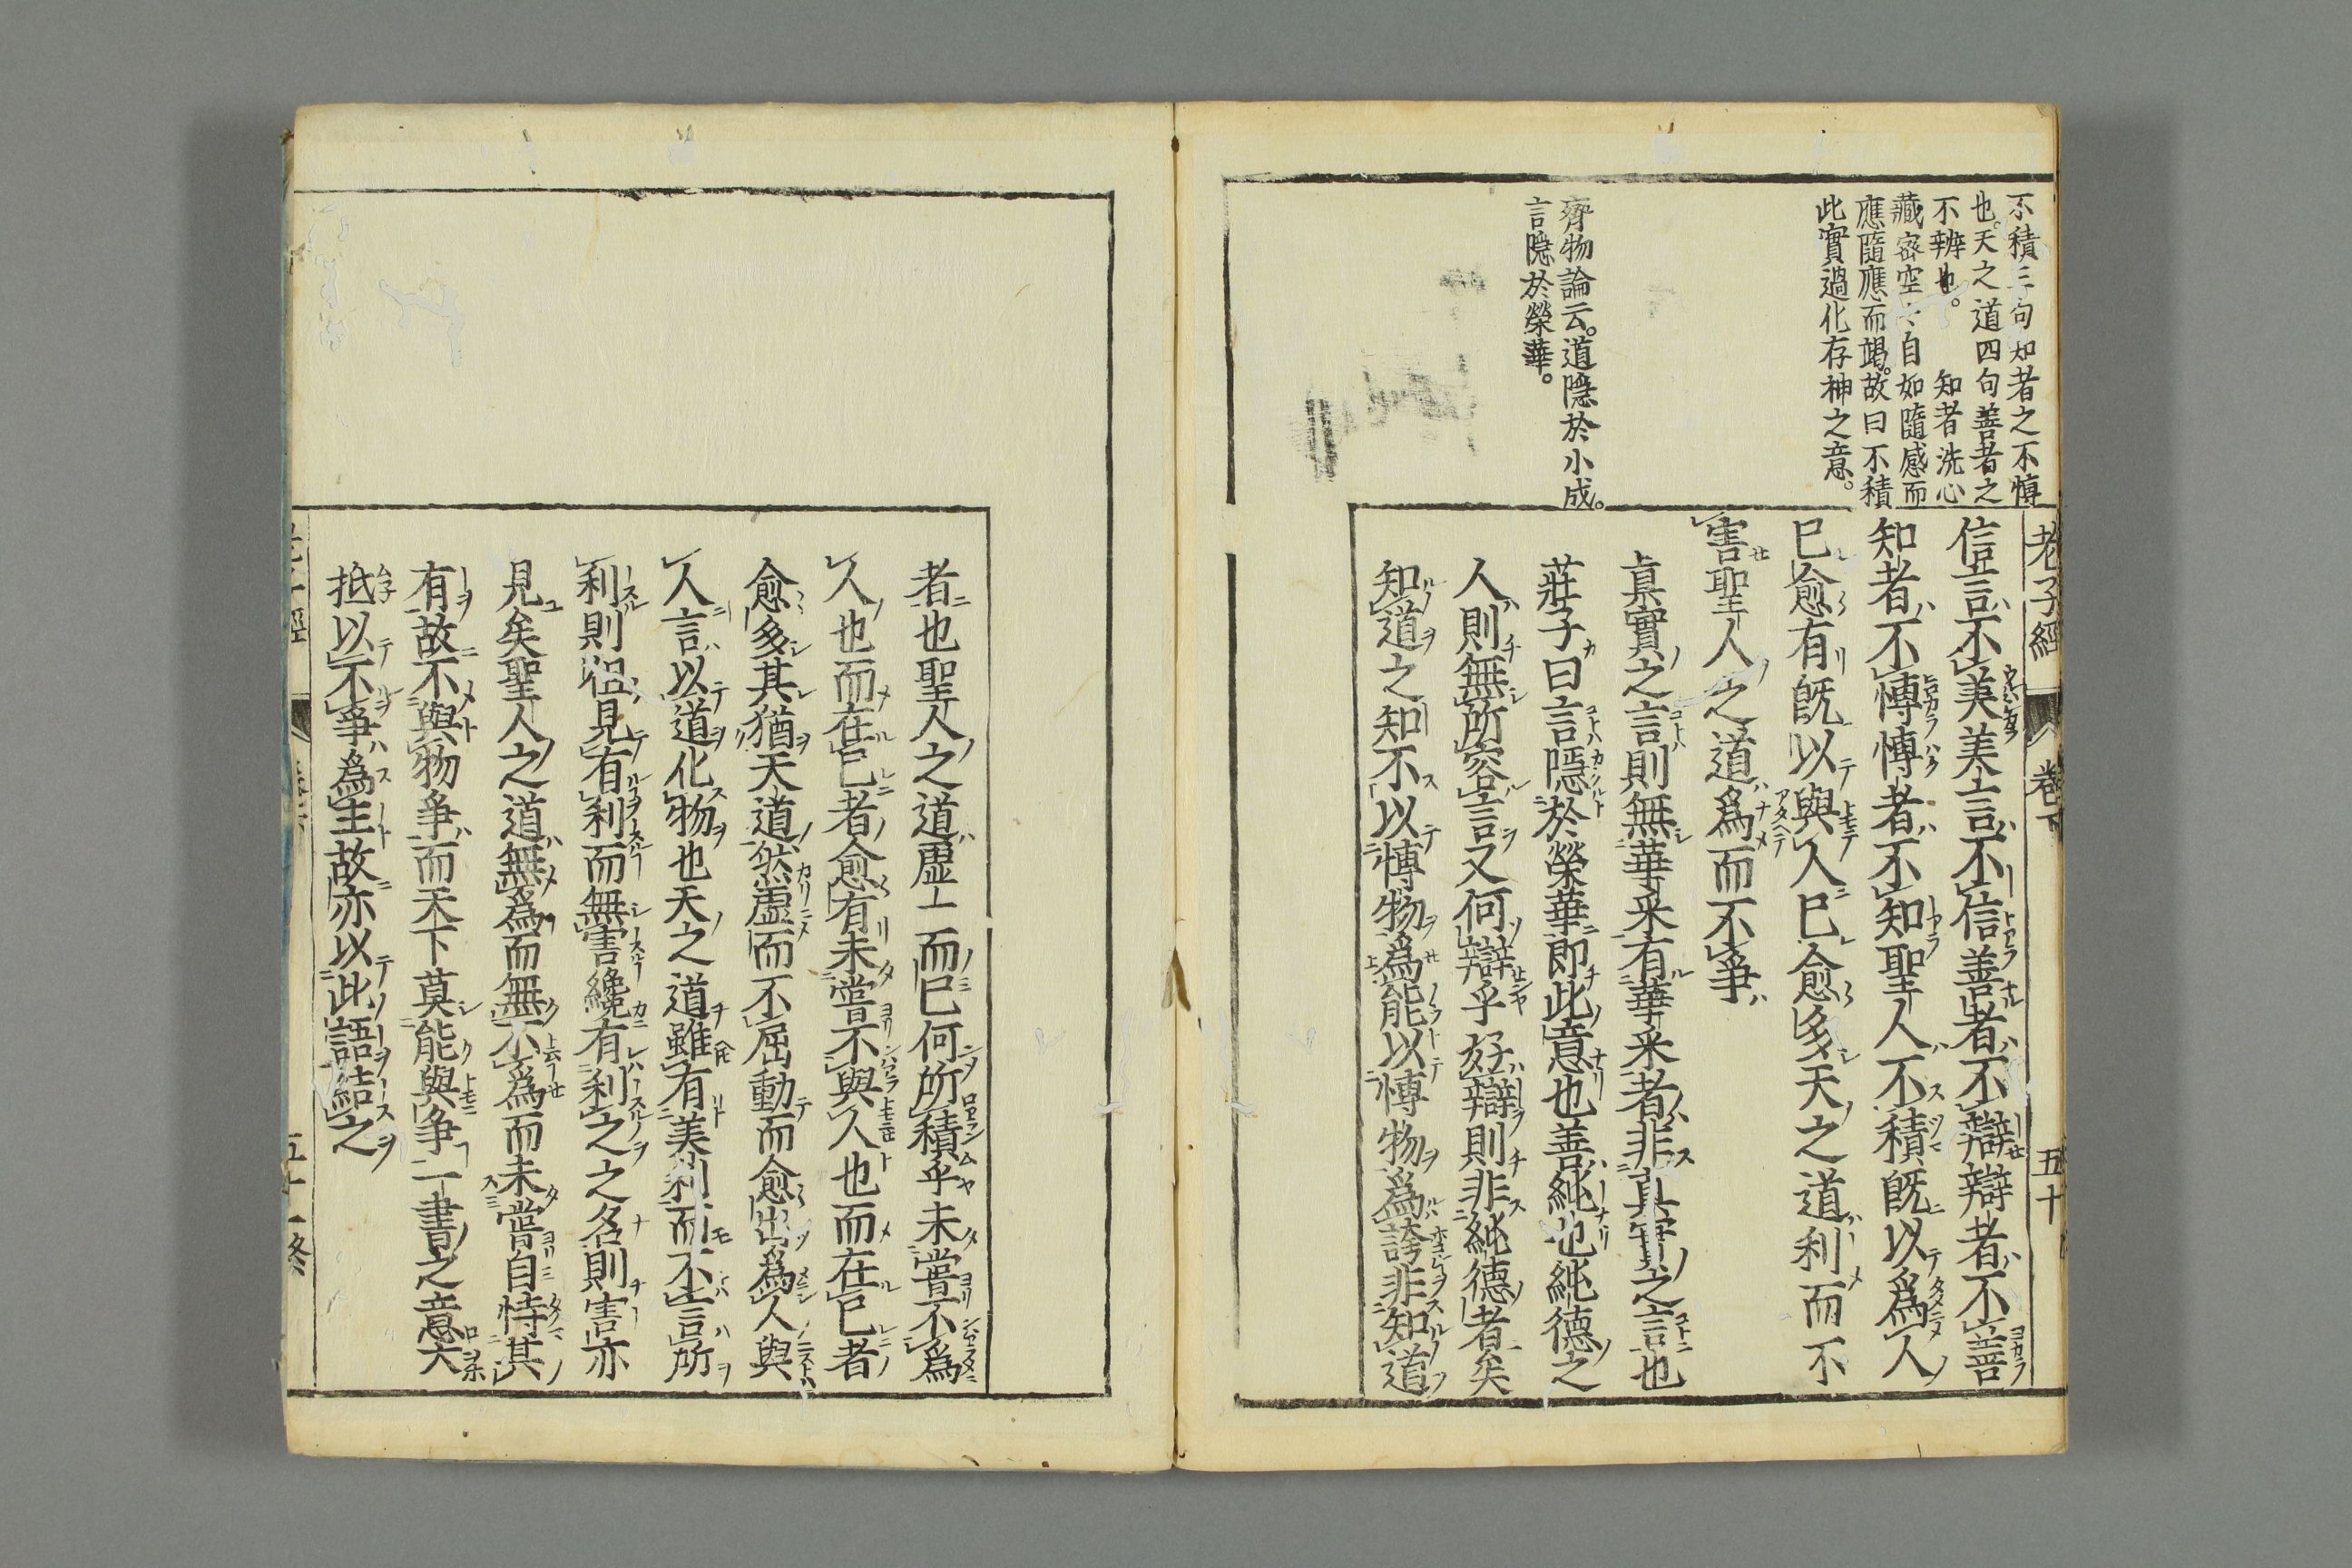 不積三句知者之不愽
也。天之道四句善者之
不辨也。　知者洗心
藏密空空自如隨感而
應隨應而竭。故曰不積
此實過化存神之意。
齊物論云。道隱於小成。
言隱於榮華。
老子經　卷下　五十
信言不美美言不信善者不辯辯者不善
知者不愽愽者不知聖人不積既以爲人
已愈有既以與人已愈多天之道利而不
害聖人之道爲而不爭
眞實之言則無華采有華采者非眞實之言也
莊子曰言隱於榮華即此意也善純也純德之
人則無所容言又何辯乎好辯則非純德者矣
知道之知不以愽物爲能以愽物爲誇非知道
者也聖人之道虛而已何所積乎未嘗不爲
人也而在已者愈有未嘗不與人也而在已者
愈多其猶天道然虛而不屈動而愈出爲人與
人言以道化物也天之道雖有美利而不言所
利則但見有利而無害纔有利之之名則害亦
見矣聖人之道無爲而無不爲而未嘗自恃其
有故不與物爭而天下莫能與爭一書之意大
抵以不爭爲主故亦以此語結之
五十一終